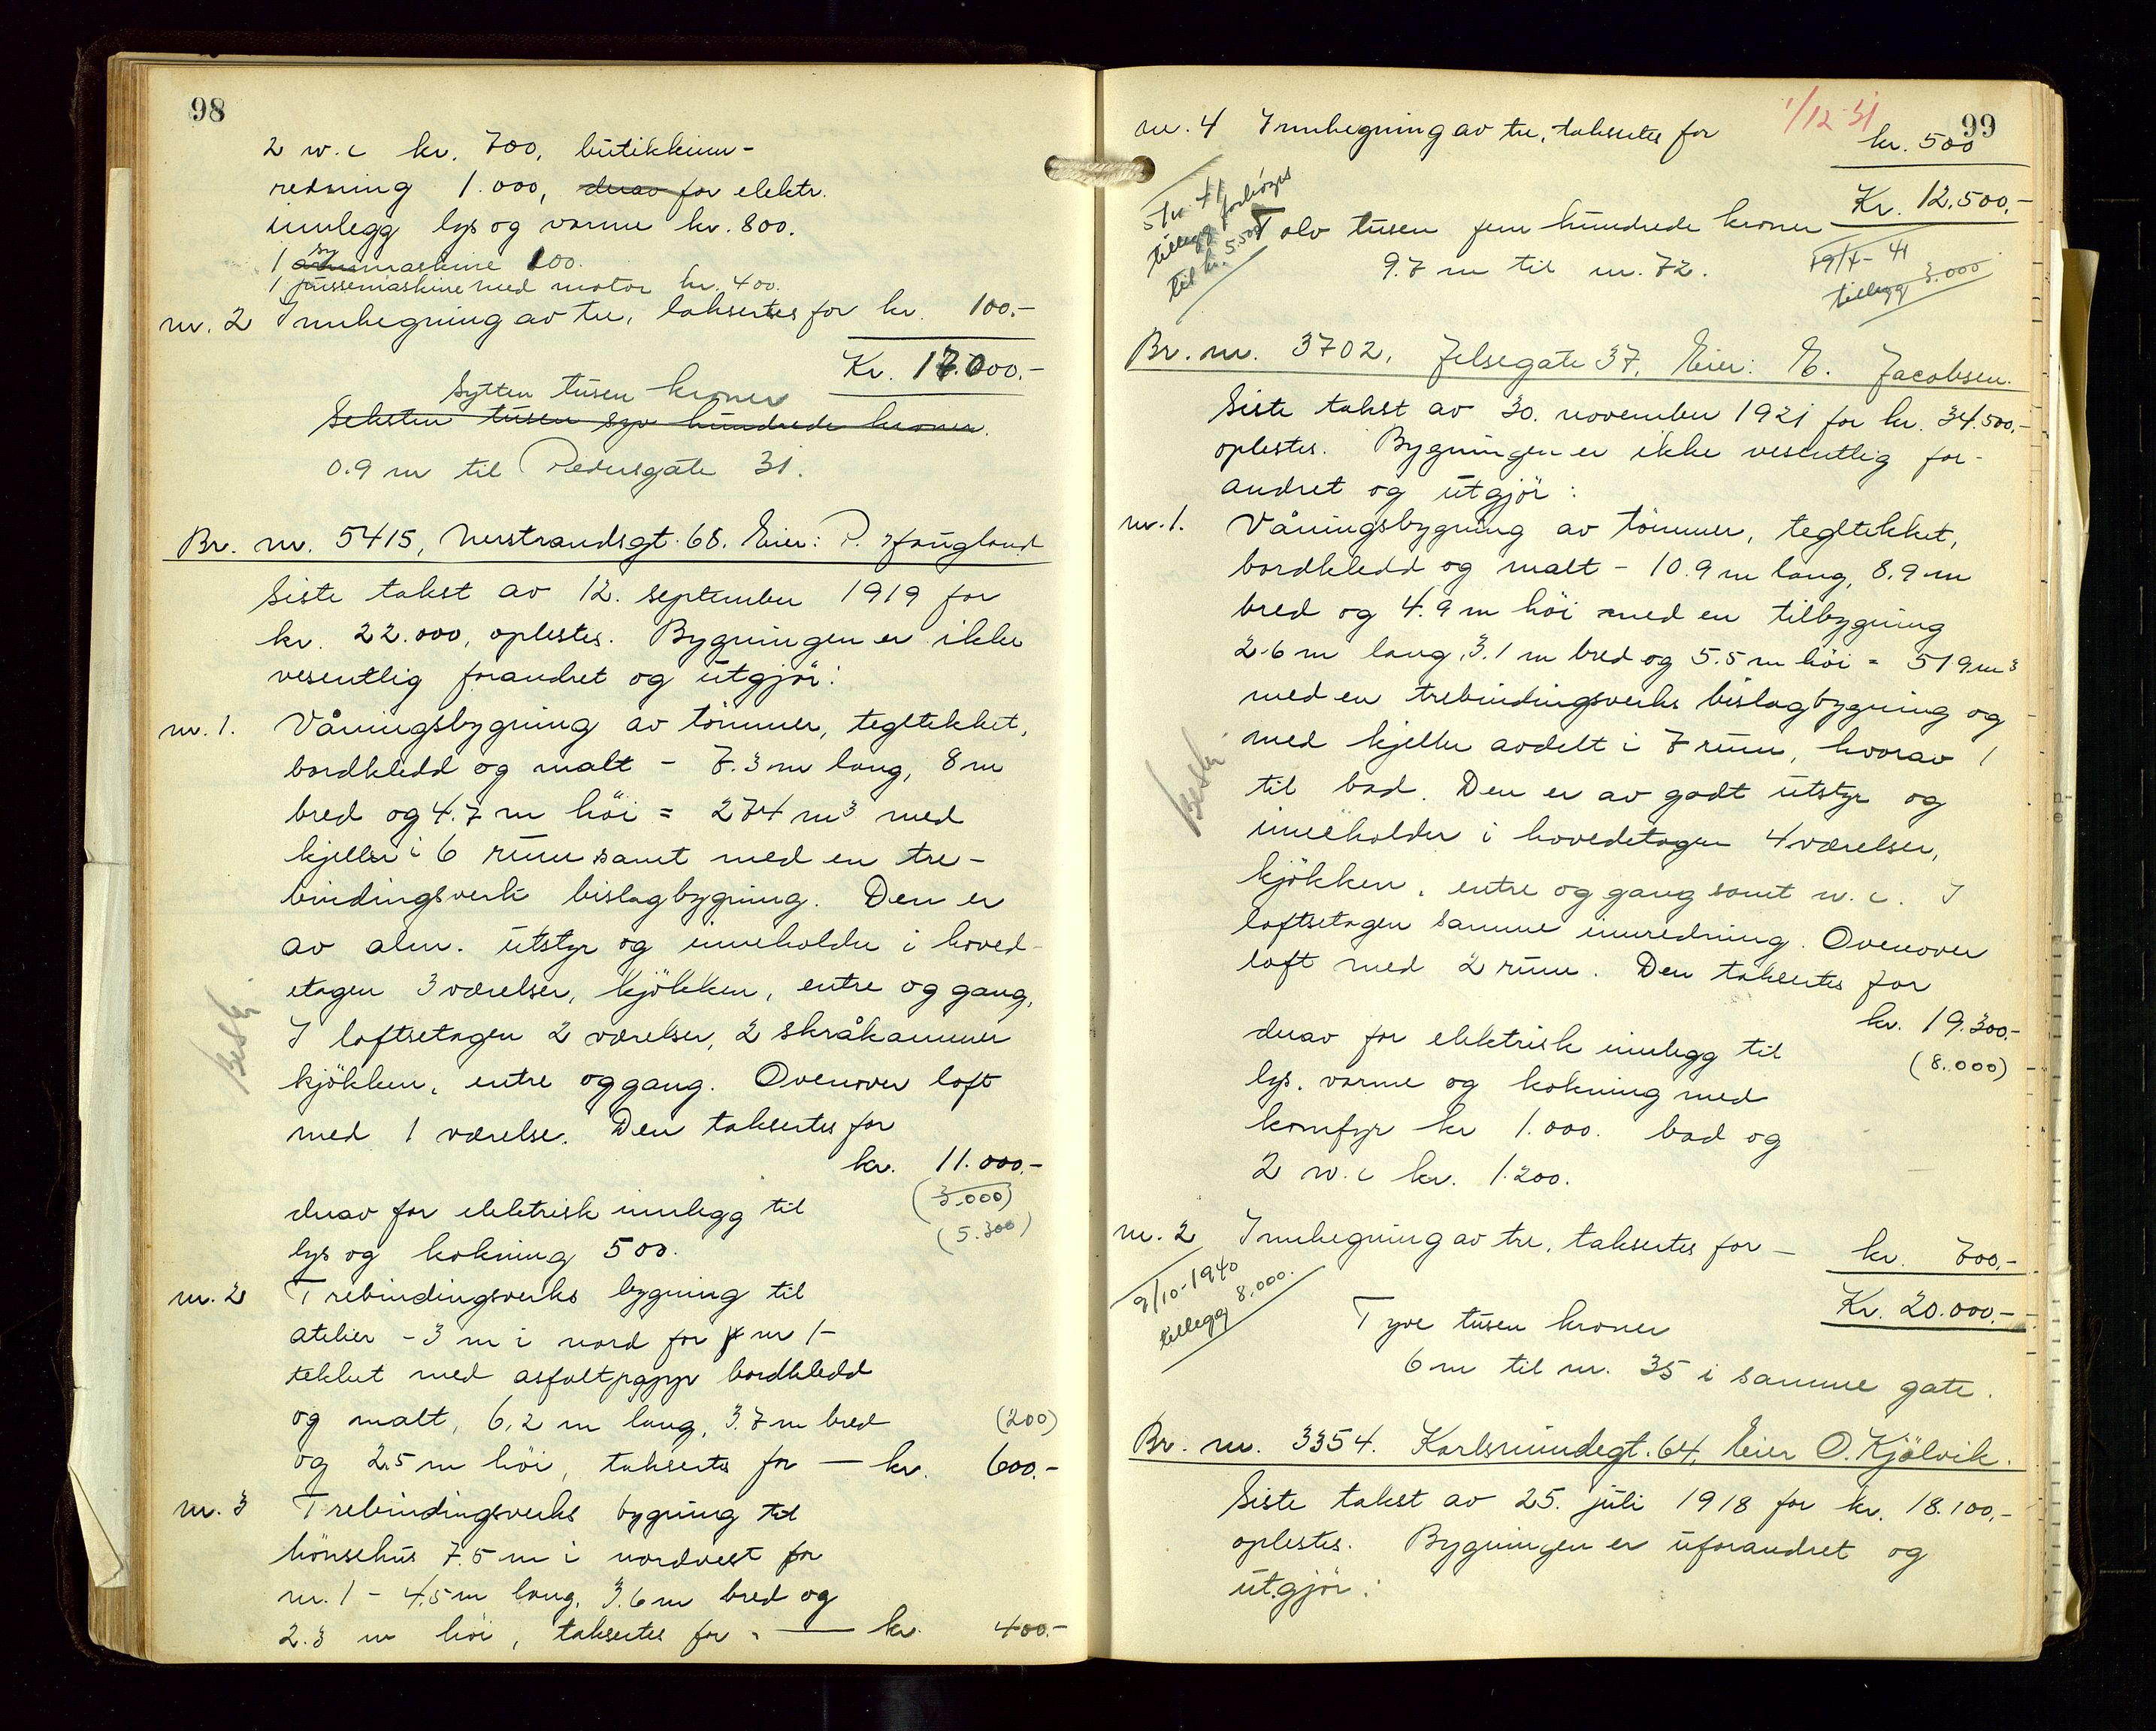 98
2 w.c kr. 700, butikkinn-
redning 1.000, derav for elektr.
innlegg lys og varme kr. 800.
1 symaskine 100.
1 pussemaskine med motor kr. 400.
nr. 2 Innhegning av tre, taksertes for kr. 100.-
Kr. 17.000.-
Sytten tusen kroner
Seksten tusen syv hundrede kroner.
0.9 m til Pedersgate 31.
Br. nr. 5415, Nerstrandsgt. 68. Eier: P. Haugland
Siste takst av 12. september 1919 for
kr. 22.000, oplestes. Bygningen er ikke
vesentlig forandret og utgjör:
nr. 1. Våningsbygning av tömmer, tegltekket,
bordkledd og malt - 7.3 m lang, 8 m
bred og 4.7 m höi = 274 m³ med
kjeller i 6 rum samt med en tre-
bindingsverk bislagbygning. Den er
av alm. utstyr og inneholder i hoved-
etagen 3 værelser, kjökken, entre og gang,
I loftsetagen 2 værelser, 2 skråkammer
kjökken, entre og gang. Ovenover loft
med 1 værelse. Den taksertes for
kr. 11.000.-
(3.000)
derav for elektrisk innlegg til
(5.300)
lys og kokning 500.
nr. 2 Trebindingsverks bygning til
atelier - 3 m i nord for nr 1 -
tekket med asfaltpapp bordkledd
og malt, 6,2 m lang, 3.7 m bred (200)
og 2.5 m höi, taksertes for — kr. 600.-
nr. 3 Trebindingsverks bygning til
hönsehus 7.5 m i nordvest for
nr. 1 - 4.5 m lang, 3.6 m bred og
2.3 m höi, taksertes for — kr. 400.-
1/12 31
99
nr. 4 Innhegning av tre, taksertes for kr. 500
Kr. 12.500,-
5/11-41
tillegg forhöges
til kr. 5.500
Tolv tusen fem hundrede kroner
9.7 m til nr. 72.
19/4-41
tillegg 3.000
Br. nr. 3702, Jelsegate 37. Eier: E. Jacobsen.
Siste takst av 30. november 1921 for kr. 34.500,-
oplestes. Bygningen er ikke vesentlig for-
andret og utgjör:
nr. 1. Våningsbygning av tömmer, tegltekket,
bordkledd og malt - 10.9 m lang, 8.9 m
bred og 4.9 m höi med en tilbygning
2.6 m lang, 3.1 m bred og 5.5 m höi = 519 m³
med en trebindingsverks bislagbygning og
med kjeller avdelt i 7 rum, hvorav 1
til bad. Den er av godt utstyr og
inneholder i hovedetagen 4 værelser,
kjökken, entre og gang samt w.c. I
loftsetagen samme innredning. Ovenover
loft med 2 rum. Den taksertes for
kr. 19.300,-
derav for elektrisk innlegg til
(8.000)
lys, varme og kokning med
komfyr kr 1.000. bad og
2 w.c kr. 1.200.
nr. 2 Innhegning av tre, taksertes for — kr. 700,-
Kr. 20.000,-
9/10-1940
tillegg 8.000.
Tyve tusen kroner
6 m til nr. 35 i samme gate.
Br. nr. 3354. Karlsmindegt. 64, Eier O. Kjölvik.
Siste takst av 25. juli 1918 for kr. 18.100,-
oplestes. Bygningen er uforandret og
utgjör: